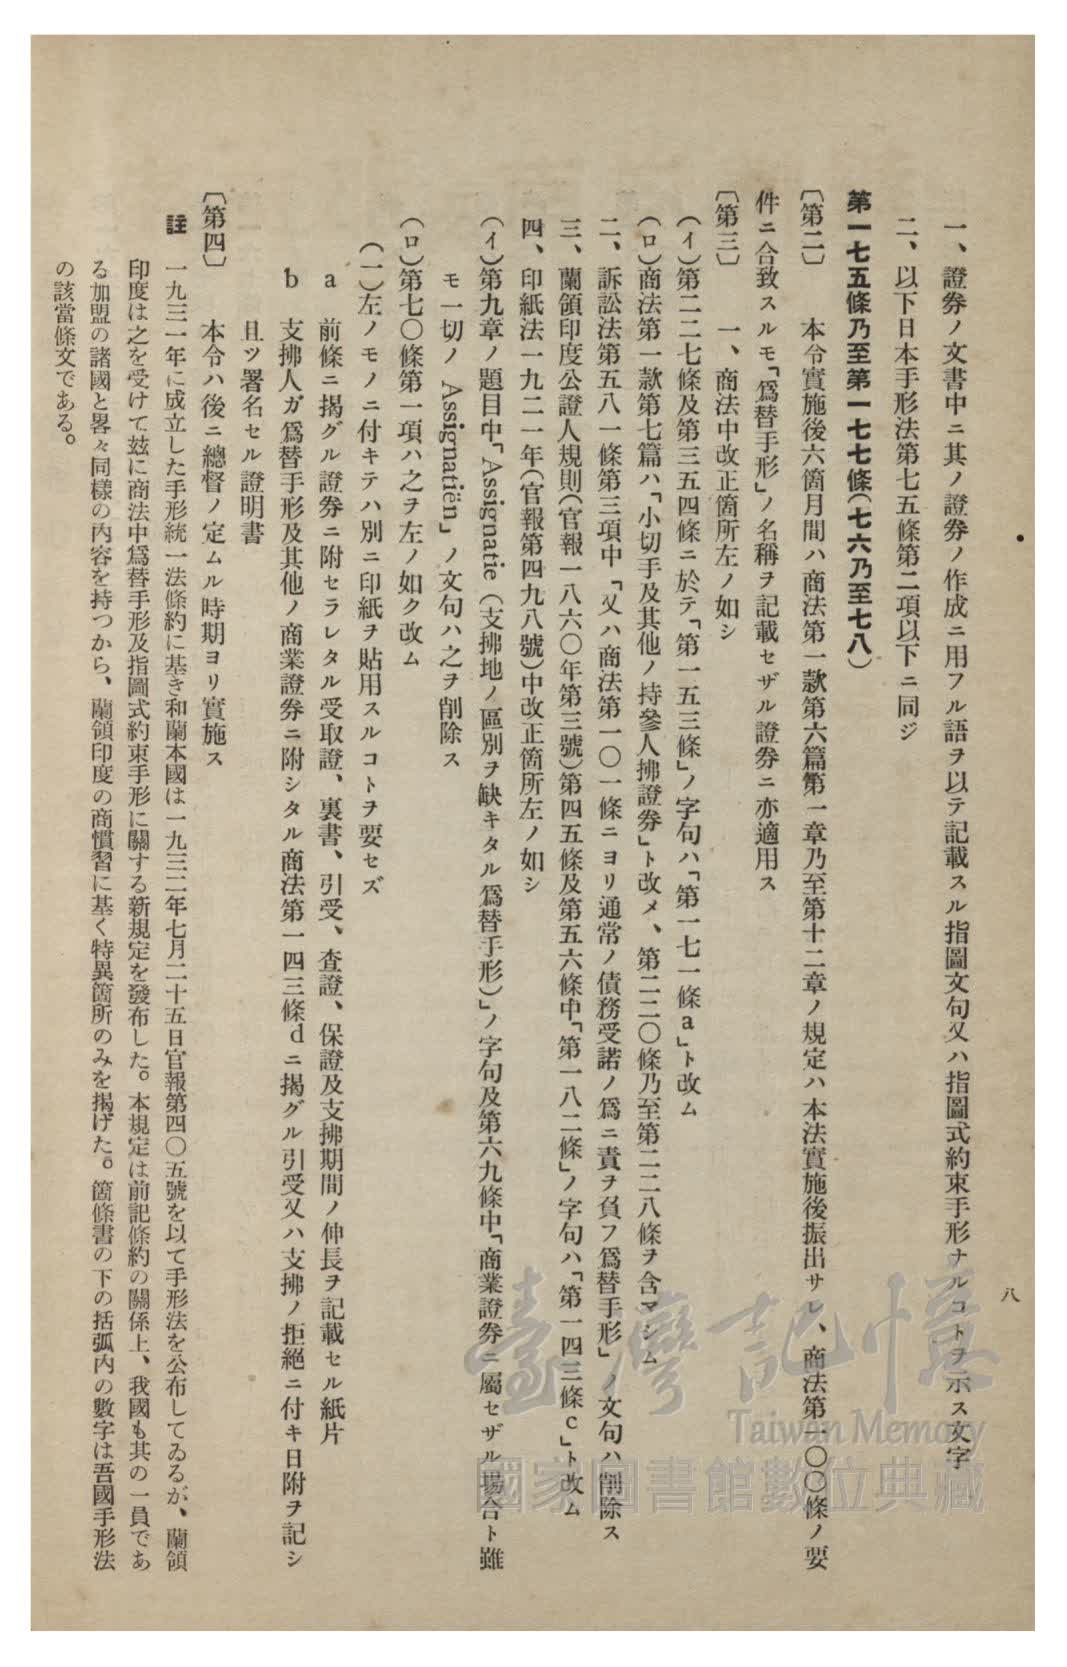 八
一、證券ノ文書中ニ其ノ證券ノ作成ニ用フル語ヲ以テ記載スル指圖文句又ハ指圖式約束手形ナルコトヲ示ス文字
二、以下日本手形法第七五條第二項以下ニ同ジ
第一七五條乃至第一七七條(七六乃至七八)
〔第二〕　本令實施後六箇月間ハ商法第一款第六篇第一章乃至第十二章ノ規定ハ本法實施後振出サレ、商法第一〇〇條ノ要
件ニ合致スルモ「爲替手形」ノ名稱ヲ記載セザル證券ニ亦適用ス
〔第三〕　一、商法中改正箇所左ノ如シ
(イ)第二二七條及第三五四條ニ於テ「第一五三條」ノ字句ハ「第一七一條a」ト改ム
(ロ)商法第一款第七篇ハ「小切手及其他ノ持參人拂證券」ト改メ、第二二〇條乃至第二二八條ヲ含マシム
二、訴訟法第五八一條第三項中「又ハ商法第一〇一條ニヨリ通常ノ債務受諾ノ爲ニ責ヲ負フ爲替手形」ノ文句ハ削除ス
三、蘭領印度公證人規則(官報一八六〇年第三號)第四五條及第五六條中「第一八二條」ノ字句ハ「第一四三條c」ト改ム
四、印紙法一九二一年(官報第四九八號)中改正箇所左ノ如シ
(イ)第九章ノ題目中「Assignatie(支拂地ノ區別ヲ缺キタル爲替手形)」ノ字句及第六九條中「商業證券ニ屬セザル場合ト雖
モ一切ノ Assignatiën」ノ文句ハ之ヲ削除ス
(ロ)第七〇條第一項ハ之ヲ左ノ如ク改ム
(一)左ノモノニ付キテハ別ニ印紙ヲ貼用スルコトヲ要セズ
a　前條ニ揭グル證券ニ附セラレタル受取證、裏書、引受、査證、保證及支拂期間ノ伸長ヲ記載セル紙片
b　支拂人ガ爲替手形及其他ノ商業證券ニ附シタル商法第一四三條dニ揭グル引受又ハ支拂ノ拒絕ニ付キ日附ヲ記シ
且ツ署名セル證明書
〔第四〕　本令ハ後ニ總督ノ定ムル時期ヨリ實施ス
註　一九三一年に成立した手形統一法條約に基き和蘭本國は一九三二年七月二十五日官報第四〇五號を以て手形法を公布してゐるが、蘭領
印度は之を受けて玆に商法中爲替手形及指圖式約束手形に關する新規定を發布した。本規定は前記條約の關係上、我國も其の一員であ
る加盟の諸國と畧々同樣の內容を持つから、蘭領印度の商慣習に基く特異箇所のみを揭げた。箇條書の下の括弧內の數字は吾國手形法
の該當條文である。
臺灣記憶
Taiwan Memory
國家圖書館數位典藏